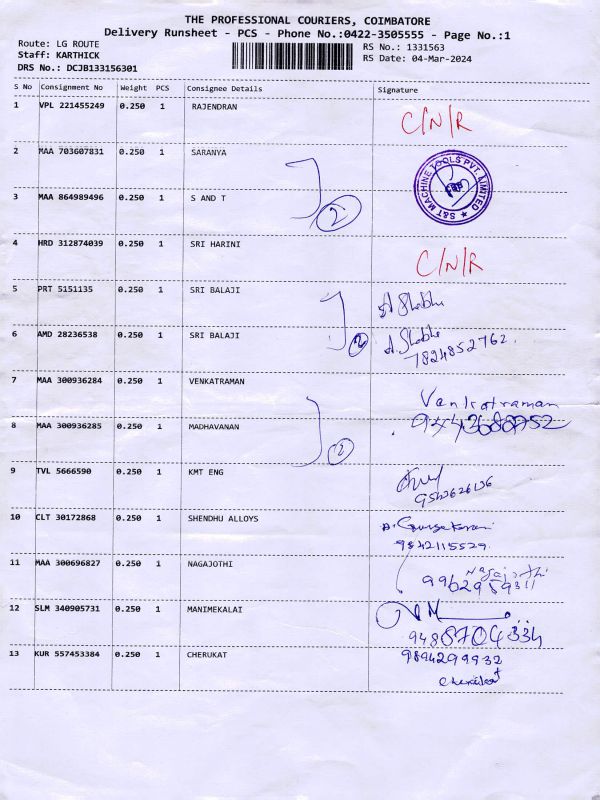 THE PROFESSIONAL COURIERS, COIMBATORE
Delivery Runsheet - PCS - Phone No.:0422-3505555 - Page No.:1
Route: LG ROUTE
RS No.: 1331563
Staff: KARTHICK
RS Date: 04-Mar-2024
DRS No.: DCJB133156301
S No Consignment No Weight PCS Consignee Details Signature
1 VPL 221455249 0.250 1 RAJENDRAN C/N/R
2 MAA 703607831 0.250 1 SARANYA
S&T MACHINE TOOLS PVT. LIMITED
3 MAA 864989496 0.250 1 S AND T 2
4 HRD 312874039 0.250 1 SRI HARINI C/N/R
5 PRT 5151135 0.250 1 SRI BALAJI
6 AMD 28236538 0.250 1 SRI BALAJI 2
7824852762
7 MAA 300936284 0.250 1 VENKATRAMAN Venkatraman
8 MAA 300936285 0.250 1 MADHAVANAN 2
9 TVL 5666590 0.250 1 KMT ENG
10 CLT 30172868 0.250 1 SHENDHU ALLOYS
9842115529
11 MAA 300696827 0.250 1 NAGAJOTHI Nagajothi
9962959311
12 SLM 340905731 0.250 1 MANIMEKALAI
9486704334
13 KUR 557453384 0.250 1 CHERUKAT 9894299932